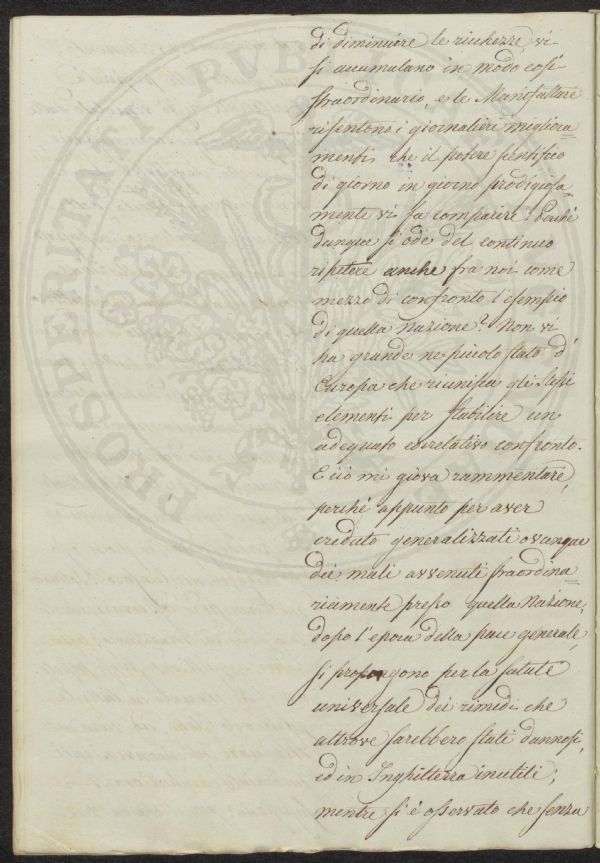 di diminuire le ricchezze, vi
si accumulano in modo così
straordinario, e le Manifatture
risentono i giornalieri migliora
menti che il potere sientifico
di giorno in giorno prodigiosa
mente vi fa comparire? Perché
dunque si ode del continuo
ripetere anche fra noi come
mezzo di confronto l'esempio
di quella Nazione? Non vi
ha grande ne piccolo stato d'
Europa che riunisca gli stessi
elementi per stabilire un
adequato correlativo confronto.
E ciò mi giova rammentare,
perché appunto per aver
creduto generalizzati ovunque
dei mali avvenuti straordina
riamente presso quella Nazione,
dopo l'epoca della pace generale,
si propongono per la salute
universale dei rimedi che
altrove sarebbero stati dannosi,
ed in Inghilterra inutili;
mentre si è osservato che senza
PROSPERITATI PUBLI